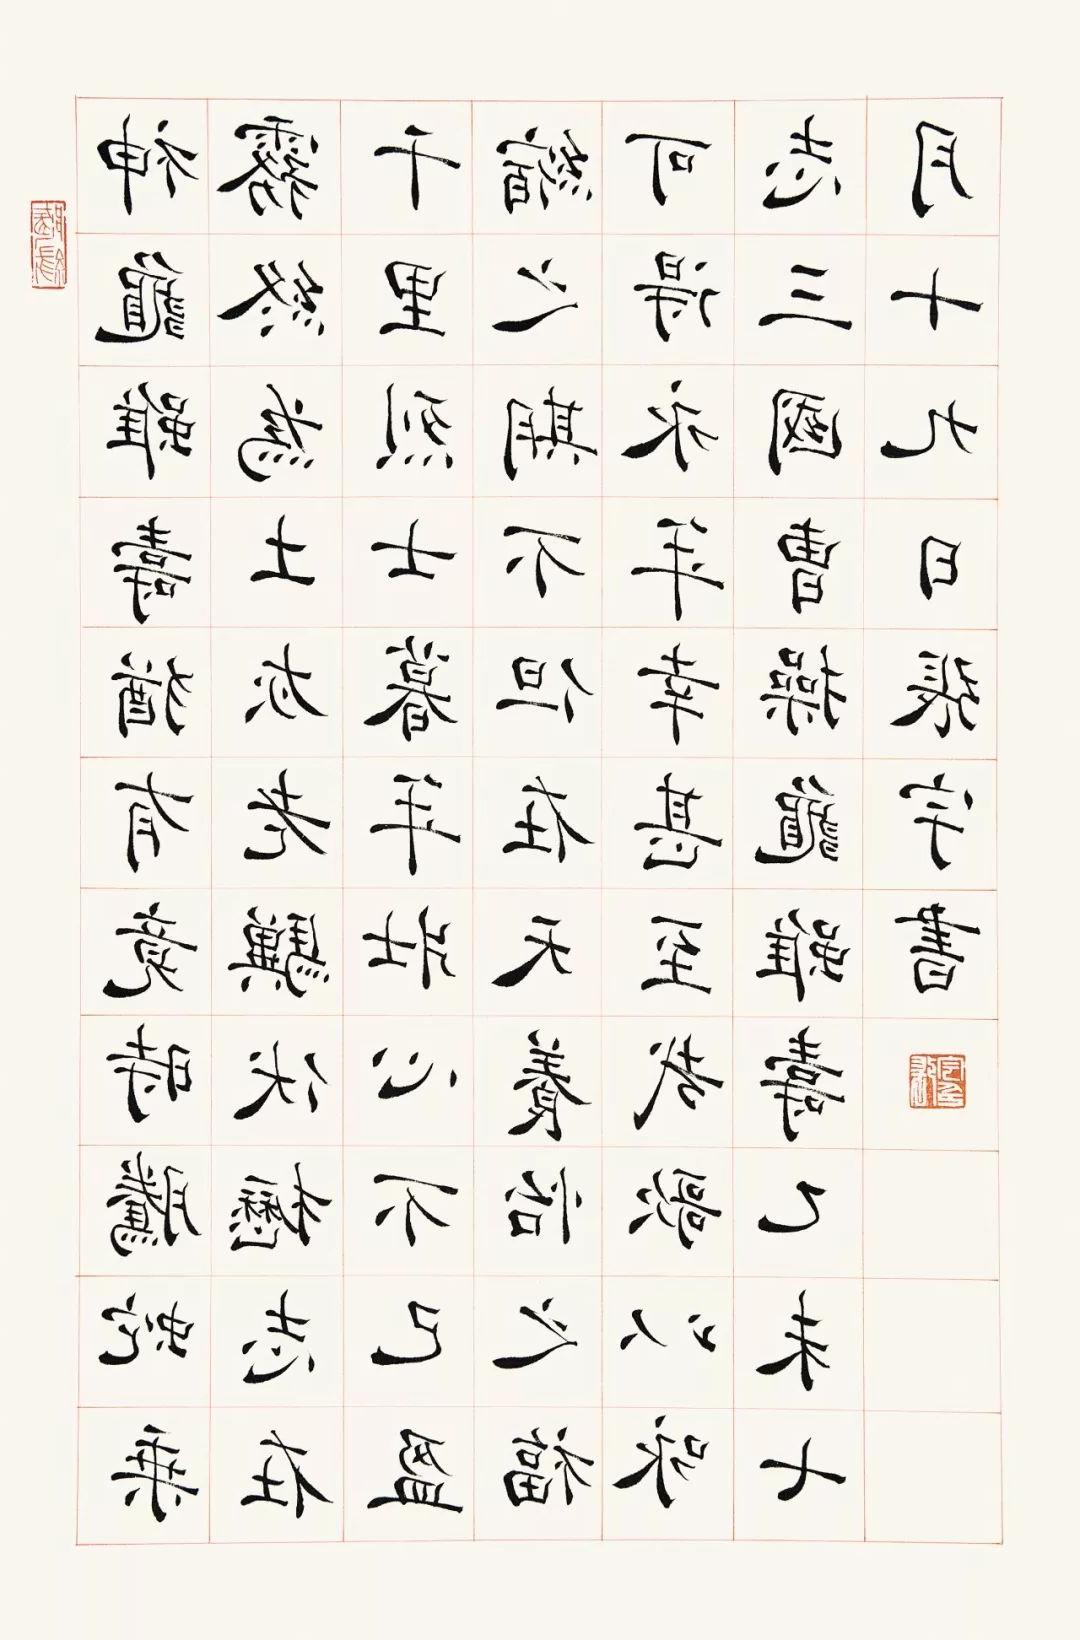 神龜雖壽猶有竟時騰蛇乘
霧終為土灰老驥伏櫪志在
千里烈士暮年壯心不已盈
縮之期不但在天養怡之福
可得永年幸甚至哉歌以詠
志三國曹操龜雖壽乙未七
月十九日張宇書